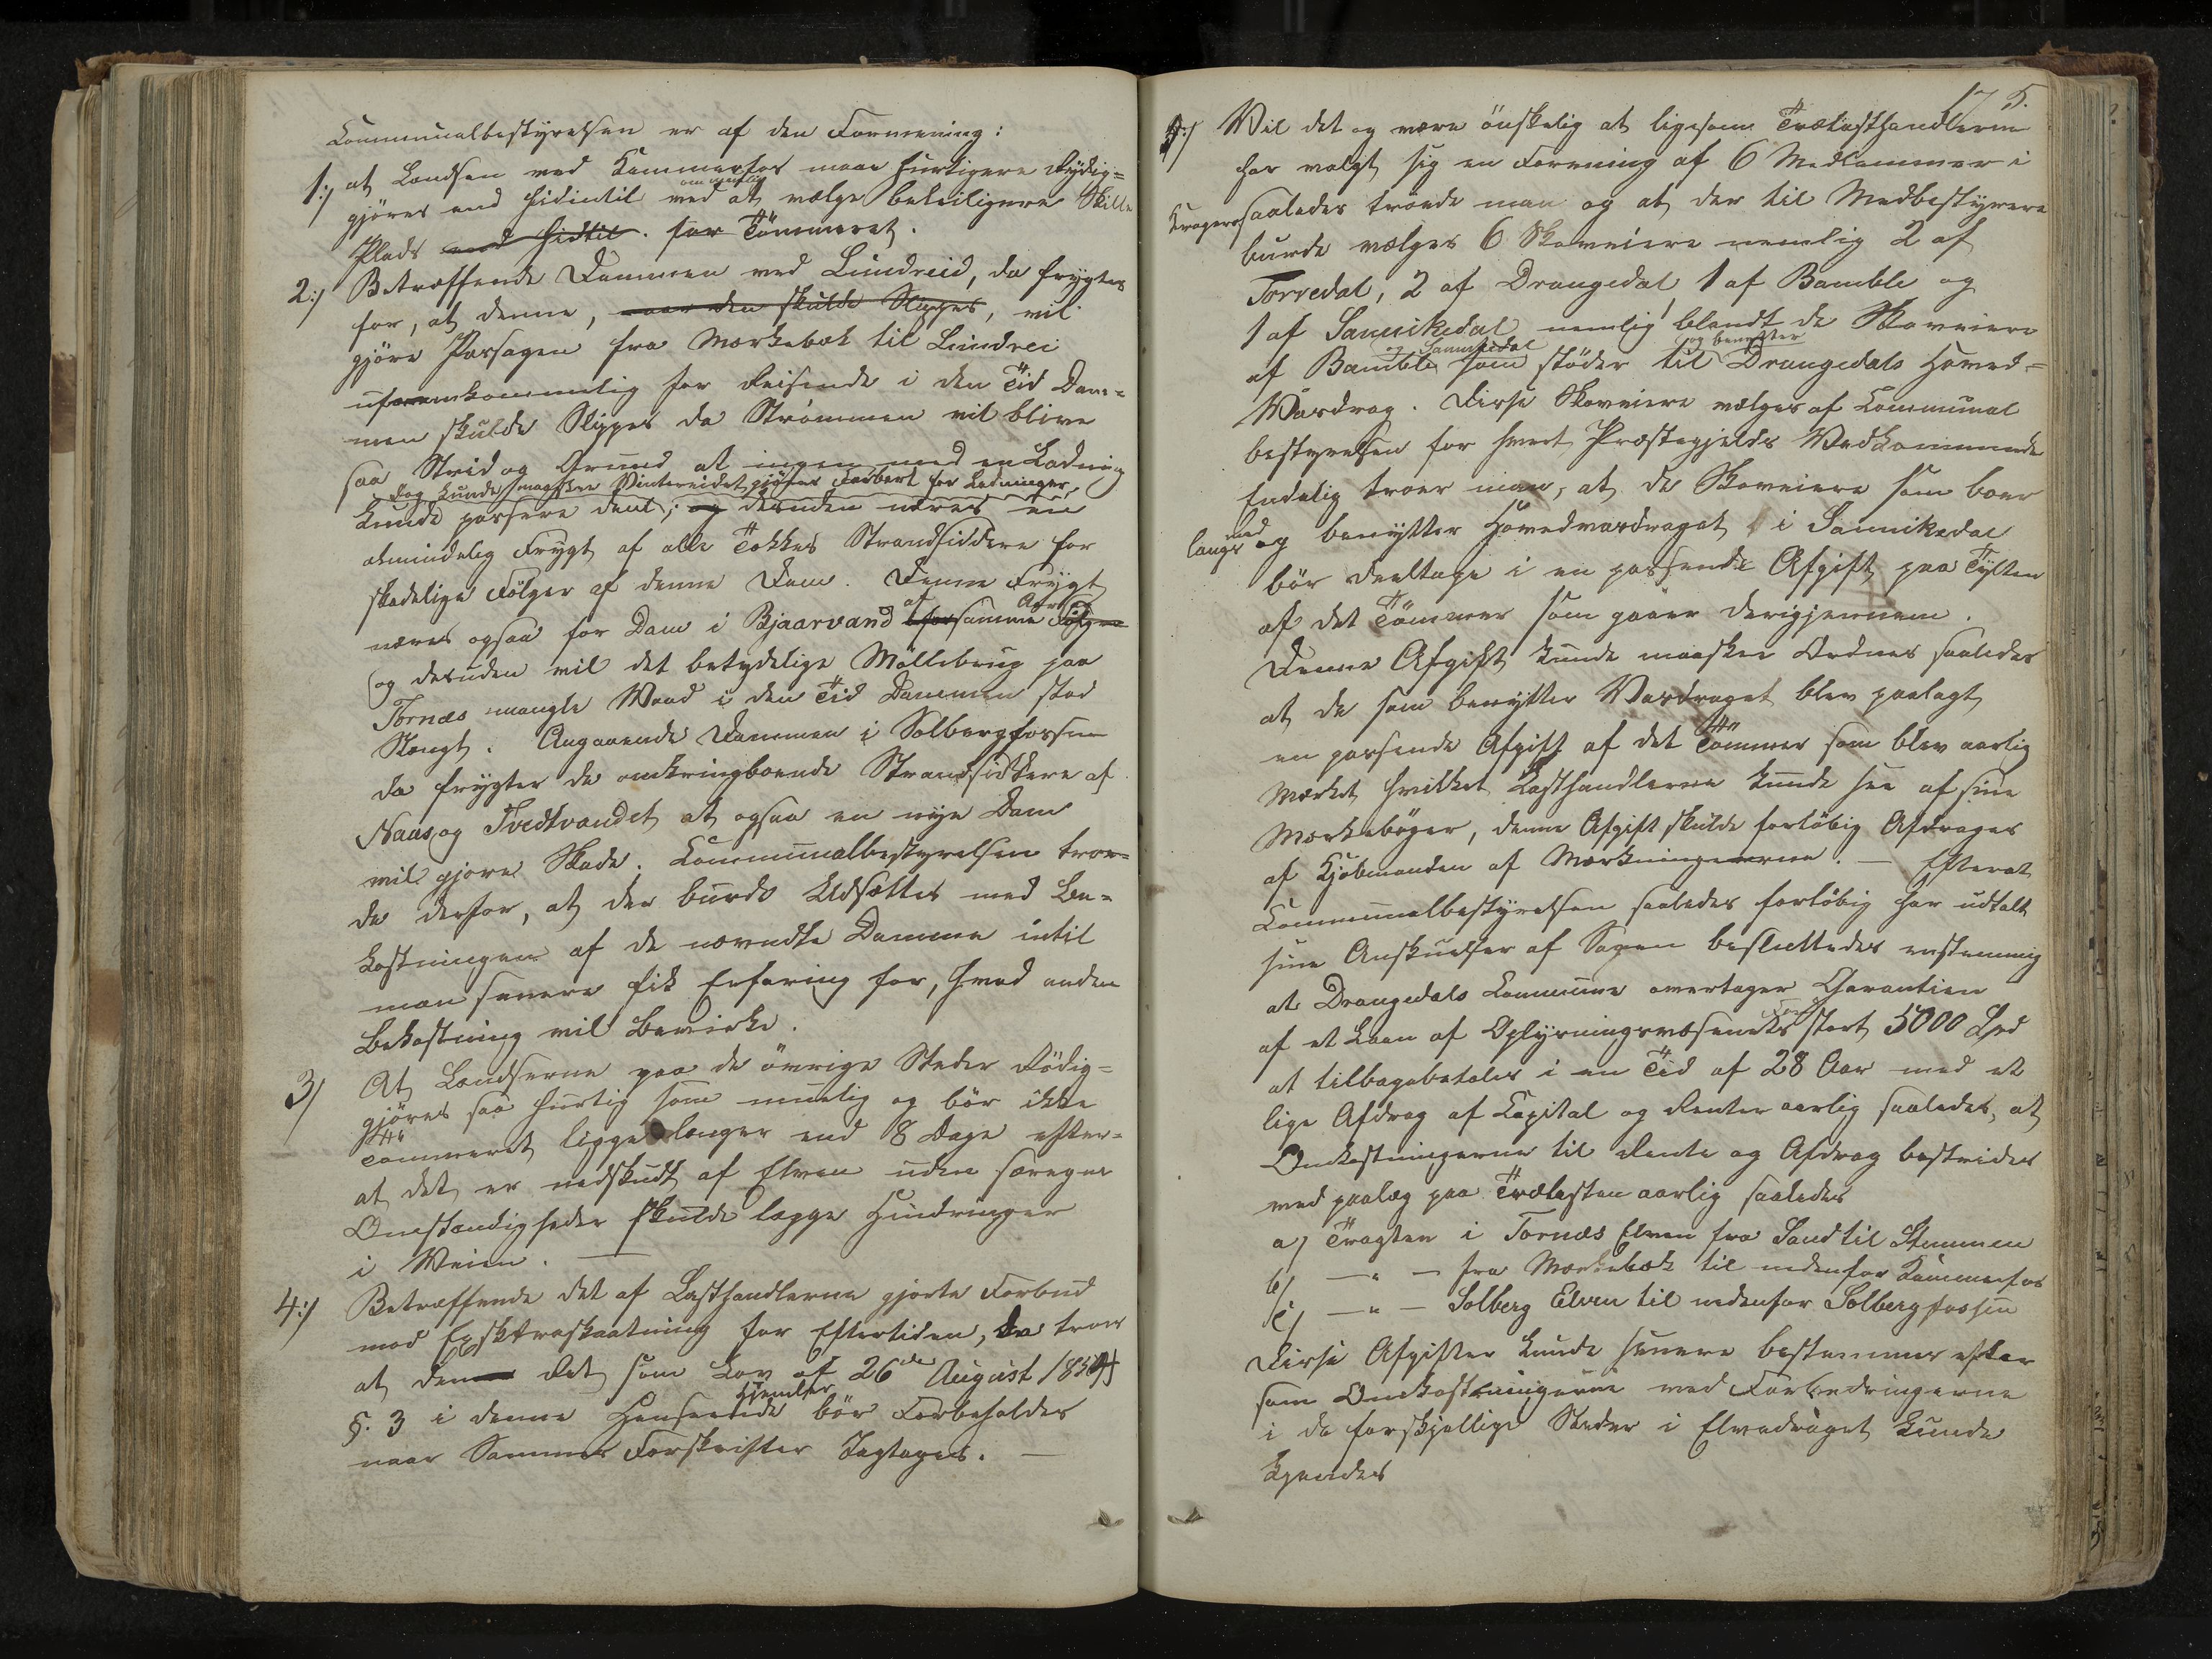 Communalbestyrelsen er af den Formening:
1:/ at Landsen ved Kammerfos maae hurtigere Rydig=
om muelig
gjöres end hidintil ved at vælge beleiligere Skille
Plads end hidtil. for Tömmeret.
2:/ Betræffende Dammen ved Lundreid, da frygtes
for, at denne, naar den skulde Slippes, vil
gjöre Passagen fra Mærkebæk til Lundrei
ufremkommelig for Reisende i den Tid Dam=
men skulde Slippes da Strømmen vil blive
saa Strid og Grund at ingen med en Ladning
Dog kunde maaskee Vinterveidet gjöres farbart for Ladninger,
kunde passere deel; og desuden næres en
almindelig Frygt af alle Tokkes Strandsiddere for
skadelige Fölger af denne Dam. Denne Frygt
næres ogsaa for Dam i Bjaarvand af samme
og desuden vil det betydelige Möllebrug paa
Tornæs mangle Vand i den Tid Dammen stod
Stængt. Angaaende Dammen i Solbergfossen
da frygter de omkringboende Strandsiddere af
Naas og Tvedtvandet at ogsaa en nye Dam
vil gjöre Skade. Communalbestyrelsen troe=
de derfor, at der burde Udsættes med Be=
kostningen af de nævndte Damme intil
man senere fik Erfaring for, hvad anden
Bekostning vil Bevirke.
3/ At Landserne paa de övrige Steder Rödig=
gjöres saa hurtig som muelig og bör ikke
Tömmeret ligge længer end 8 Dage efter=
at det er nedskudt af Elven uden særegne
Omstændigheder skulde lægge Hindringer
i Veien. —
4:/ Betræffende det af Lasthandlerne gjorte Forbud
mod Exsktraskaatning for Eftertiden, da troes
at den Ret som Lov af 26de August 1854
Hjemler
§. 3 i denne Henseende bör Forbeholdes
naar Sammes Forskrifter Iagtages. —
175.
5:/ Vil det og være önskelig at ligesom Trælasthandlerne
har valgt sig en Forening af 6 Medlemmer i
Kragerø saaledes troede man og at der til Medbestyrere
burde vælges 6 Skoveiere nemlig 2 af
Torredal, 2 af Drangedal, 1 af Bamble og
1 af Sannikedal nemlig blandt de Skoveiere
og Sannikedal og benytter
af Bamble som støder til Drangedals Hoved=
Vasdrag. Disse Skoveiere vælges af Communal
bestyrelsen for hvert Præstegjelds Vedkommende
Endelig troer man, at de Skoveiere som boer
langs med og benytter Hovedvasdraget i Sannikedal
bör deeltage i en passende Afgift paa Tylten
af det Tömmer som gaaer derigjennem.
Denne Afgift kunde maaskee Ordnes saaledes
at de som benytter Vasdraget blev paalagt
en passende Afgift af det Tömmer som blev aarlig
Mærket hvilket Lasthandlerne kunde see af sine
Mærkebøger, denne Afgift skulde forlöbig Afdrages
af Kjöbmanden af Mærkningerne. — Efterat
Communalbestyrelsen saaledes forlöbig har udtalt
sine Anskuelser af Sagen besluttedes enstemmig
at Drangedals Commune overtager Garantien
af et Laan af Oplysningsvæsenets Fond stort 5000 Spd
at tilbagebetales i en Tid af 28 Aar med et
lige Afdrag af Capital og Renter aarlig saaledes, at
Omkostningerne til Rente og Afdrag bestrides
med paalæg paa Trælasten aarlig saaledes
a/ Tragten i Tornæs Elven fra Sand til Stemmen
b/ — " — fra Mærkebæk til nedenfor Kammerfos
c/ — " — Solberg Elven til nedenfor Solbergfossen
Disse Afgifter kunde senere bestemmes efter
som Omkostningerne med Forbedringerne
i de forskjellige Steder i Elvedraget kunde
kjendes